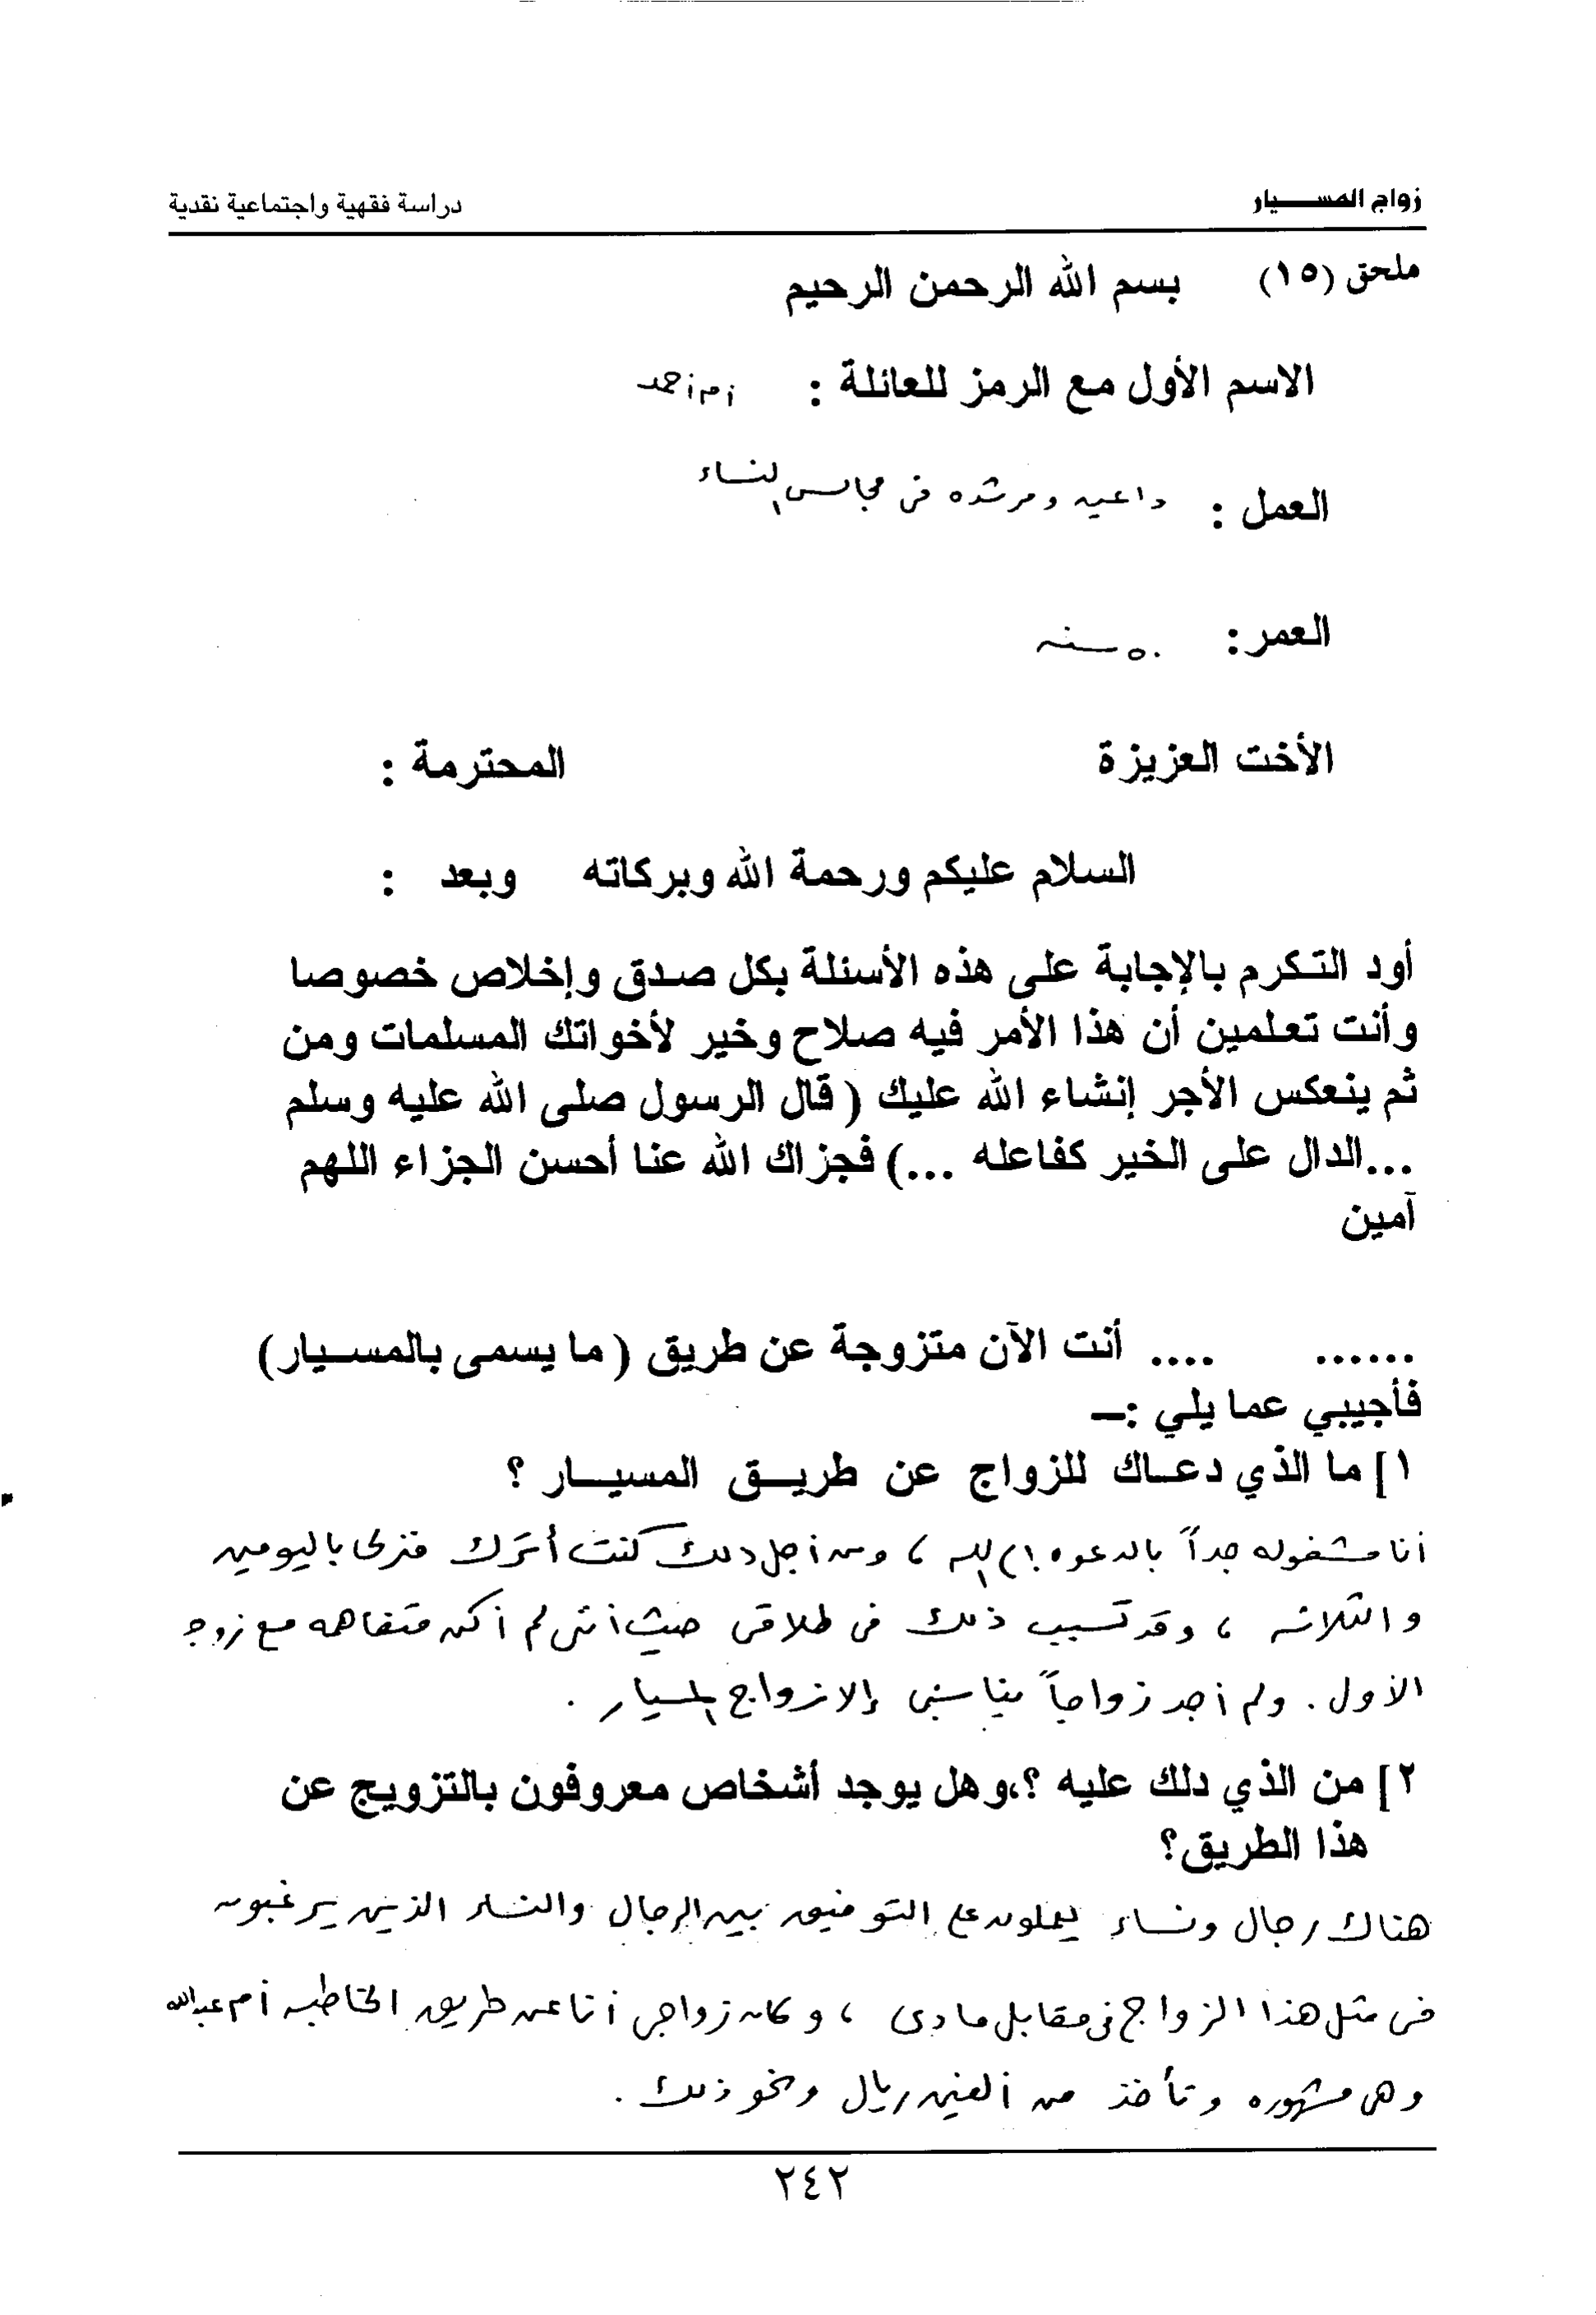 زواج المسيار دراسة فقهية واجتماعية نقدية
ملحق (١٥) بسم الله الرحمن الرحيم
الاسم الأول مع الرمز للعائلة : أم أحمد
العمل : داعيه ومرشده في مجالس النساء
العمر : ٥٠ سنه
الأخت العزيزة المحترمة :
السلام عليكم ورحمة الله وبركاته وبعد :
أود التكرم بالإجابة على هذه الأسئلة بكل صدق وإخلاص خصوصا
وأنت تعلمين أن هذا الأمر فيه صلاح وخير لأخواتك المسلمات ومن
ثم ينعكس الأجر إنشاء الله عليك ( قال الرسول صلى الله عليه وسلم
...الدال على الخير كفاعله ...) فجزاك الله عنا أحسن الجزاء اللهم
آمين
...... .... أنت الآن متزوجة عن طريق ( ما يسمى بالمسيار)
فأجيبي عما يلي :–
١] ما الذي دعاك للزواج عن طريق المسيار ؟
أنا مشغوله جداً بالدعوه إلى الله ، ومن أجل ذلك كنت أترك منزلي باليومين
والثلاثه ، وقد تسبب ذلك في طلاقي حيث أنني لم أكن متفاهمه مع زوجي
الأول . ولم أجد زواجاً يناسبني إلا زواج المسيار .
٢] من الذي دلك عليه ؟،وهل يوجد أشخاص معروفون بالتزويج عن
هذا الطريق؟
هناك رجال ونساء يعملون على التوفيق بين الرجال والنساء الذين يرغبون
في مثل هذا الزواج في مقابل مادي ، وكان زواجي أنا عن طريق الخاطبه أم عبدالله
وهي مشهوره وتأخذ من ألفين ريال ونحو ذلك .
٢٤٢